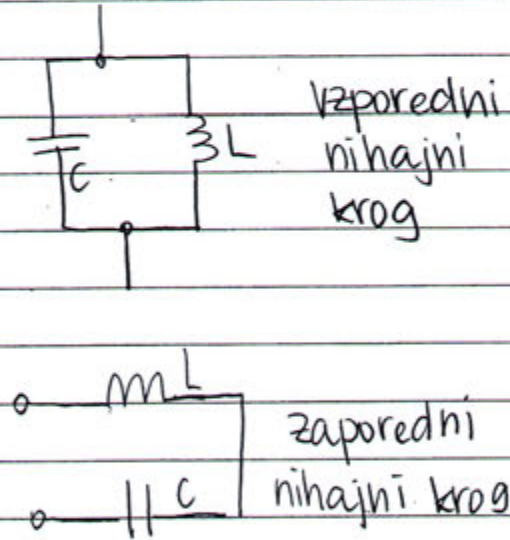 vzporedni
nihajni
krog
C
L
L
zaporedni
C
nihajni krog